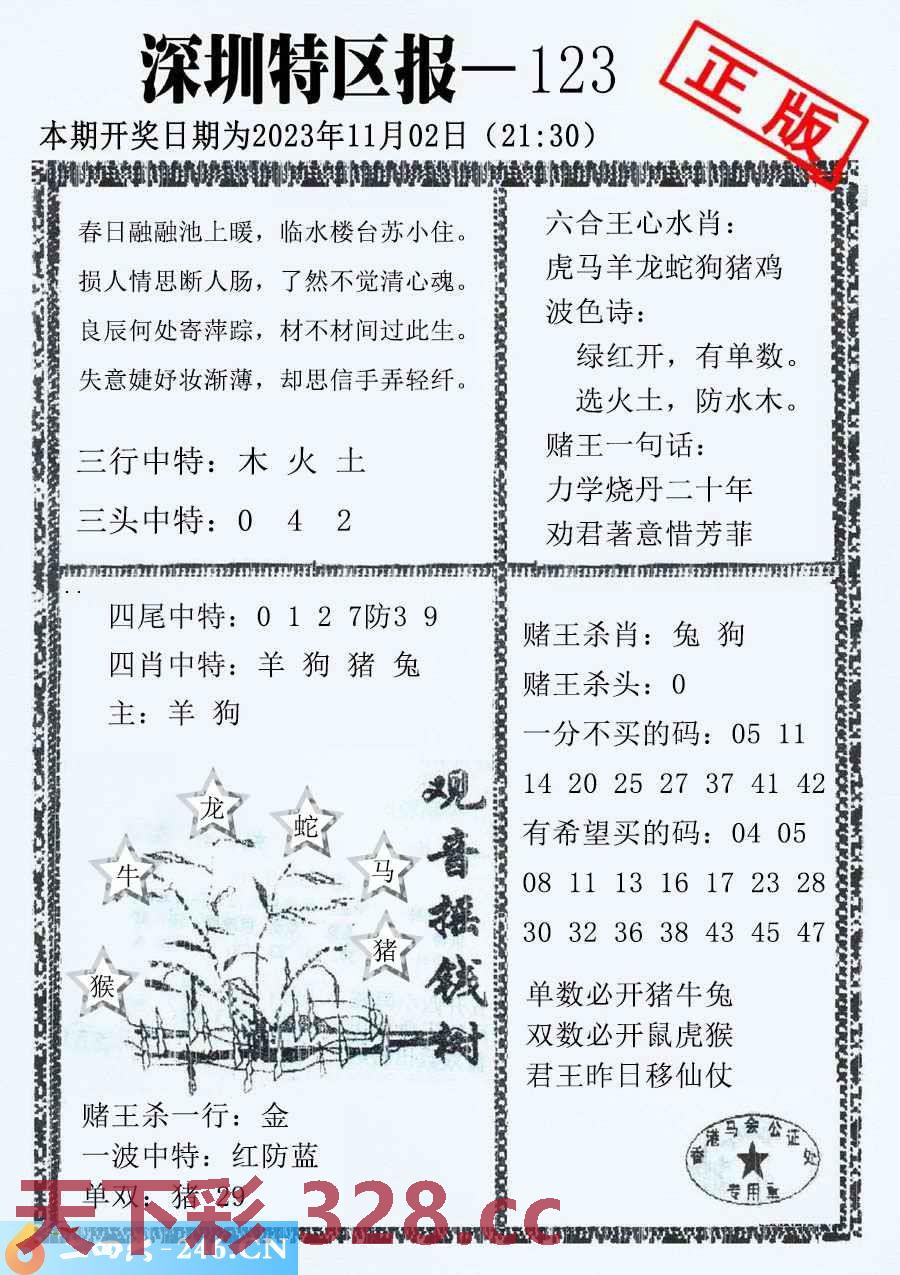 深圳特区报—123
正版
本期开奖日期为2023年11月02日（21:30）
春日融融池上暖，临水楼台苏小住。
损人情思断人肠，了然不觉清心魂。
良辰何处寄萍踪，材不材间过此生。
失意婕妤妆渐薄，却思信手弄轻纤。
三行中特：木 火 土
三头中特：0 4 2
六合王心水肖：
虎马羊龙蛇狗猪鸡
波色诗：
绿红开，有单数。
选火土，防水木。
赌王一句话：
力学烧丹二十年
劝君著意惜芳菲
四尾中特：0 1 2 7防3 9
四肖中特：羊 狗 猪 兔
主：羊 狗
龙
蛇
牛
马
猪
猴
观音摇钱树
赌王杀一行：金
一波中特：红防蓝
单双：猪 29
赌王杀肖：兔 狗
赌王杀头：0
一分不买的码：05 11
14 20 25 27 37 41 42
有希望买的码：04 05
08 11 13 16 17 23 28
30 32 36 38 43 45 47
单数必开猪牛兔
双数必开鼠虎猴
君王昨日移仙仗
香港马会公证处
专用章
天下彩 328.cc
-246.CN